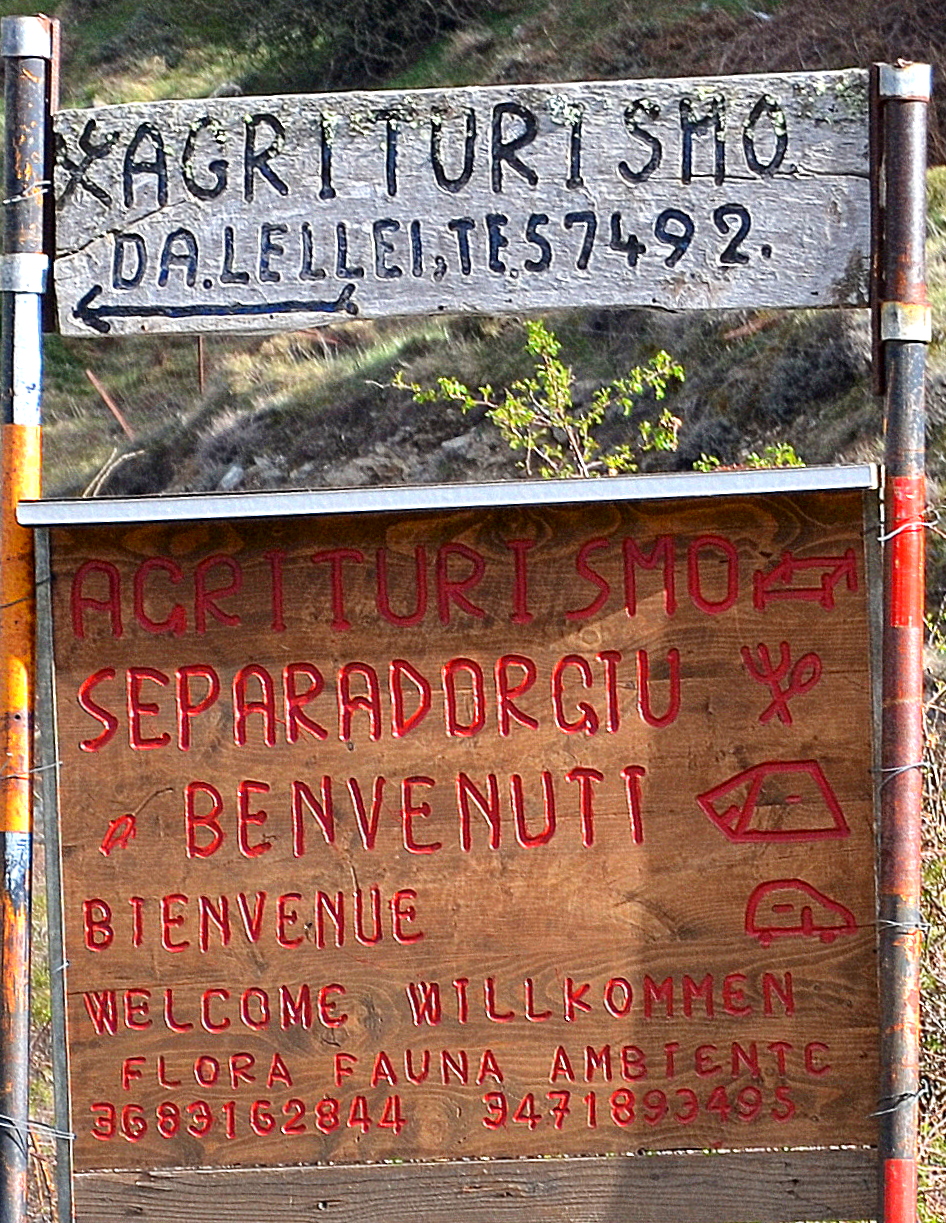 AGRITURISMO
DA.LELLEI,TE.57492.
AGRITURISMO
SEPARADORGIU
BENVENUTI
BIENVENUE
WELCOME WILLKOMMEN
FLORA FAUNA AMBIENTE
3683162844 3471893495